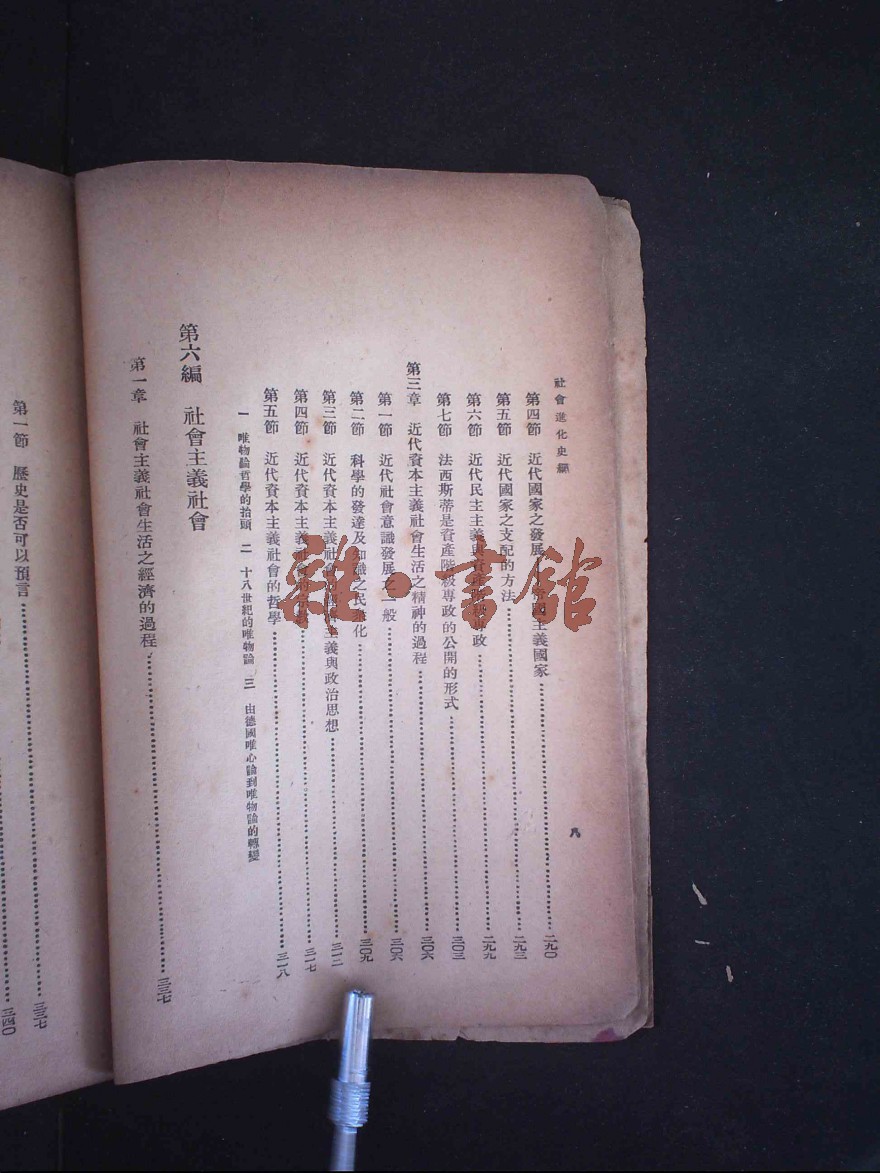 社會進化史綱
八
第四節 近代國家之發展——帝國主義國家 二九〇
第五節 近代國家之支配的方法 二九三
第六節 近代民主主義與資 專政 二九九
第七節 法西斯蒂是資產階級專政的公開的形式 三〇三
第三章 近代資本主義社會生活之精神的過程 三〇六
第一節 近代社會意識發展之一般 三〇六
第二節 科學的發達及知識之民衆化 三〇九
第三節 近代資本主義社會 主義與政治思想 三一二
第四節 近代資本主義社會 三一七
第五節 近代資本主義社會的哲學 三一八
一 唯物論哲學的抬頭 二 十八世紀的唯物論 三 由德國唯心論到唯物論的轉變
第六編 社會主義社會
第一章 社會主義社會生活之經濟的過程 三三七
第一節 歷史是否可以預言 三三七
三四〇
雜·書館